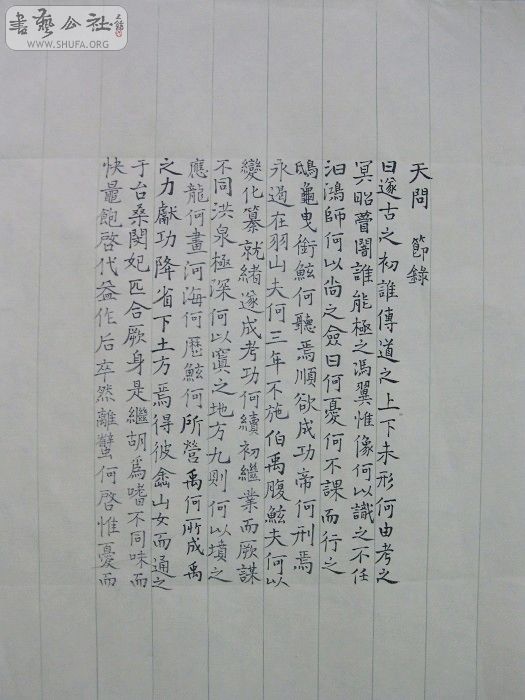 書藝公社
WWW.SHUFA.ORG
天問 節錄
曰遂古之初誰傳道之上下未形何由考之
冥昭瞢闇誰能極之馮翼惟像何以識之不任
汩鴻師何以尚之僉曰何憂何不課而行之
鴟龜曳銜鮌何聽焉順欲成功帝何刑焉
永遏在羽山夫何三年不施伯禹腹鮌夫何以
變化纂就緒遂成考功何續初繼業而厥謀
不同洪泉極深何以窴之地方九則何以墳之
應龍何畫河海何歷鮌何所營禹何所成禹
之力獻功降省下土方焉得彼嵞山女而通之
于台桑閔妃匹合厥身是繼胡為嗜不同味而
快鼂飽啓代益作后卒然離蠥何啓惟憂而